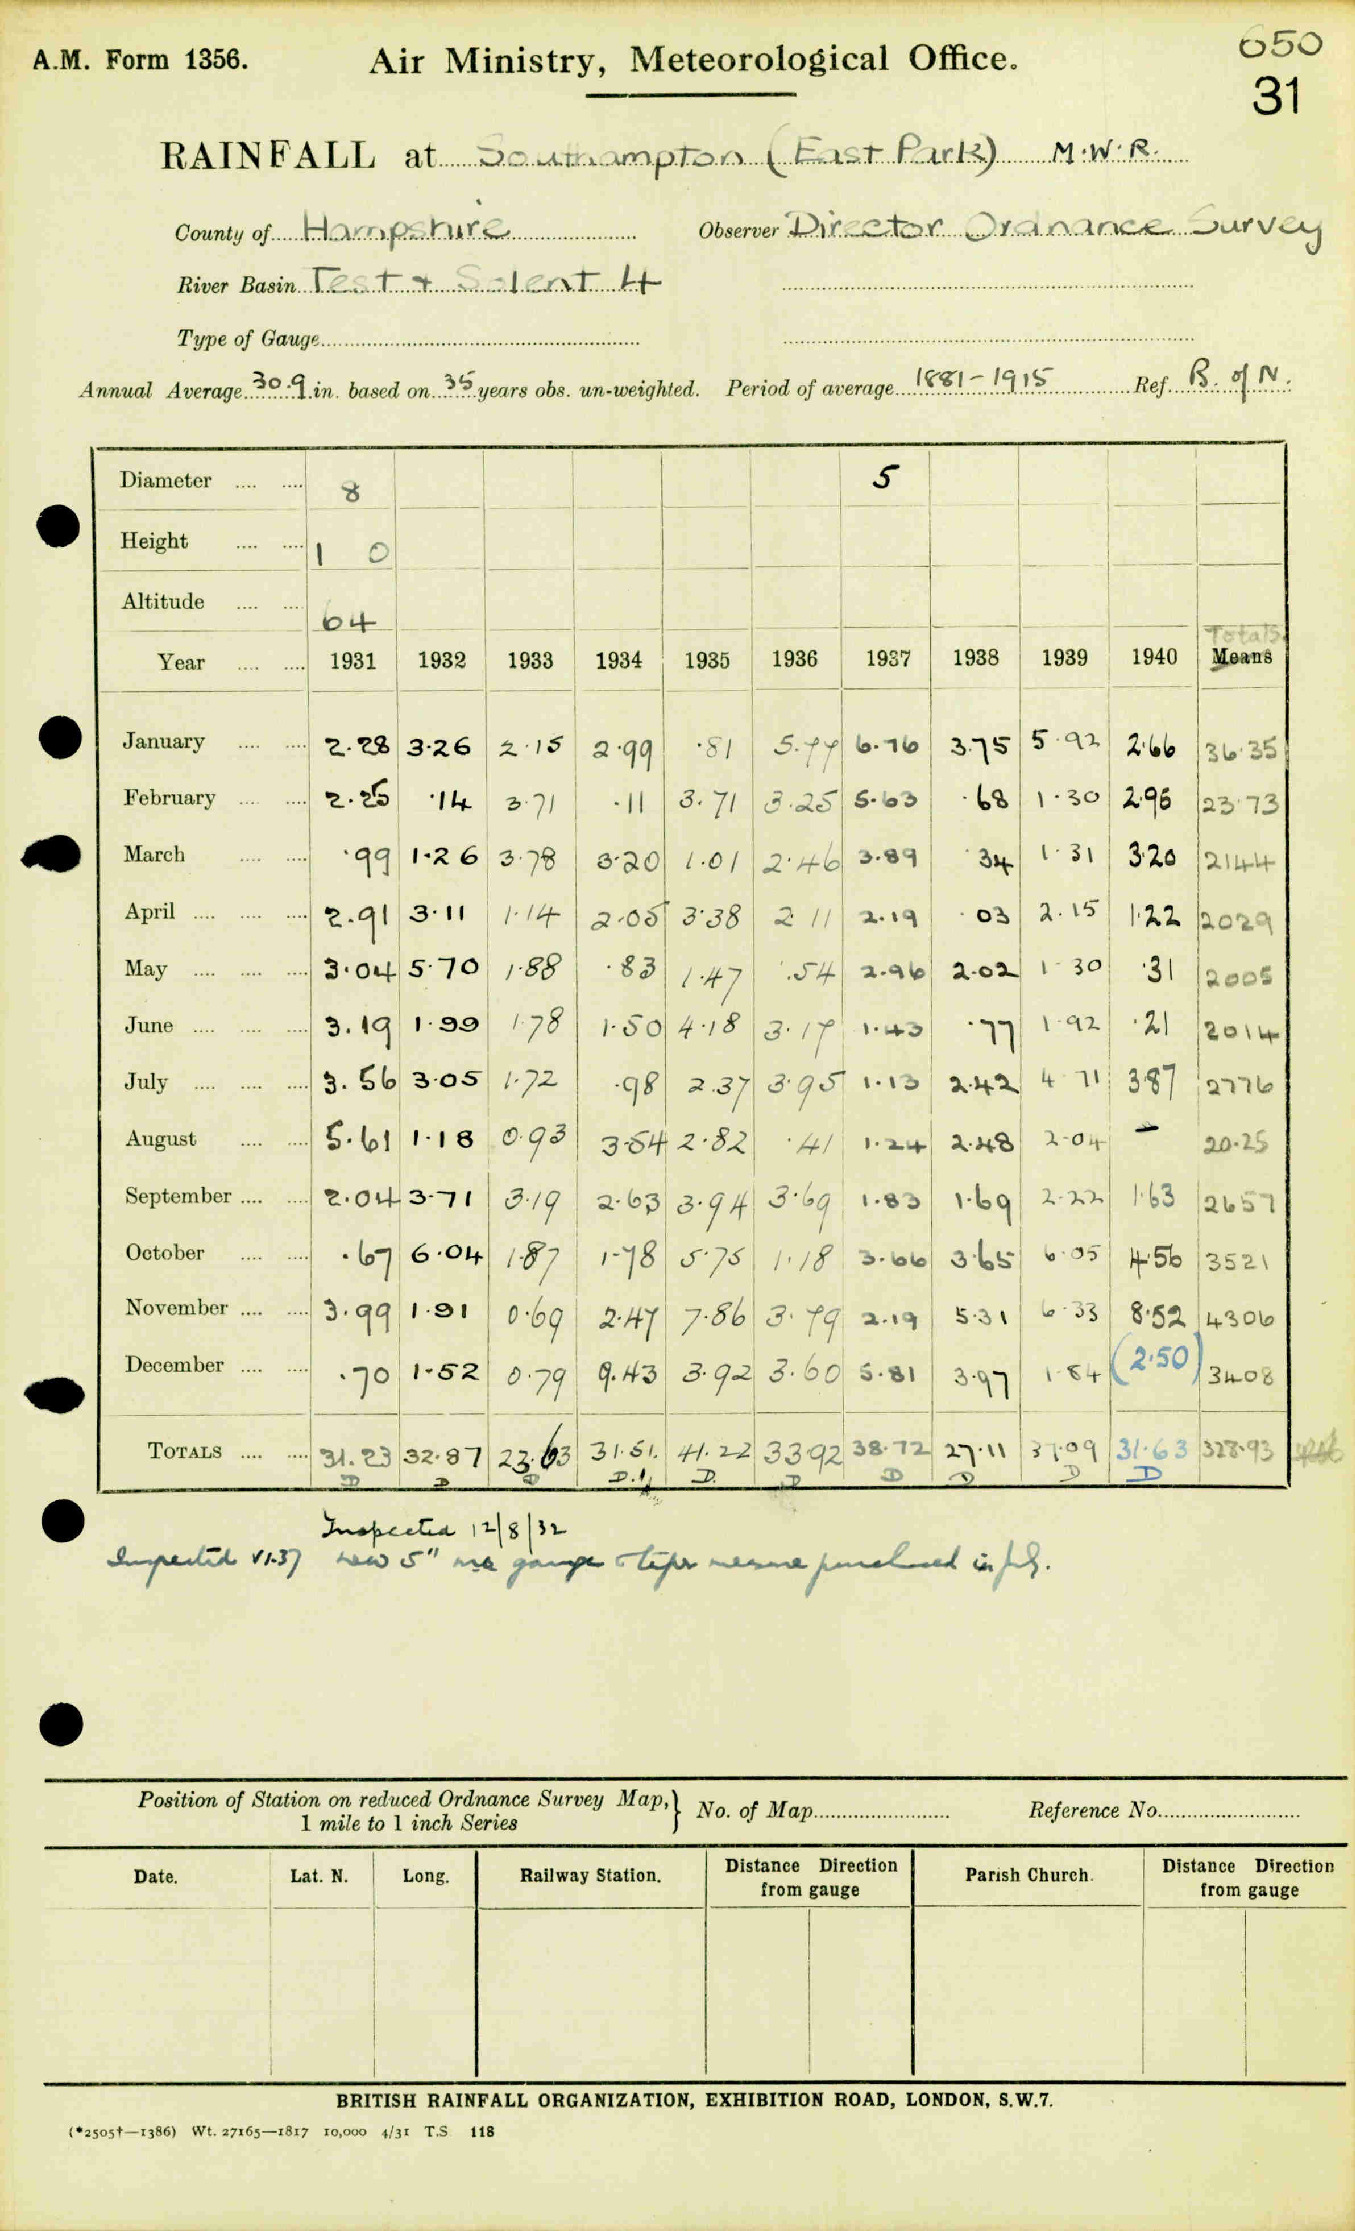 A.M. Form 1356. Air Ministry, Meteorological Office. 650
31
RAINFALL at Southampton (East Park) M.W.R.
County of Hampshire Observer Director Ordnance Survey
River Basin Test + Solent 4
Type of Gauge
Annual Average 30.9 in. based on 35 years obs. un-weighted. Period of average 1881-1915 Ref. B. of N.
Diameter 8 5
Height 1 0
Altitude 64
Totals
Year 1931 1932 1933 1934 1935 1936 1937 1938 1939 1940 Means
January 2.28 3.26 2.15 2.99 .81 5.77 6.76 3.75 5.92 2.66 36.35
February 2.25 .14 3.71 .11 3.71 3.25 5.63 .68 1.30 2.95 23.73
March .99 1.26 3.78 3.20 1.01 2.46 3.89 .34 1.31 3.20 2144
April 2.91 3.11 1.14 2.05 3.38 2.11 2.19 .03 2.15 1.22 2029
May 3.04 5.70 1.88 .83 1.47 .54 2.96 2.02 1.30 .31 2005
June 3.19 1.99 1.78 1.50 4.18 3.17 1.43 .77 1.92 .21 2014
July 3.56 3.05 1.72 .98 2.37 3.95 1.13 2.42 4.71 3.87 2776
August 5.61 1.18 0.93 3.54 2.82 .41 1.24 2.48 2.04 – 20.25
September 2.04 3.71 3.19 2.63 3.94 3.69 1.83 1.69 2.22 1.63 2657
October .67 6.04 1.87 1.78 5.75 1.18 3.66 3.65 6.05 4.56 3521
November 3.99 1.91 0.69 2.47 7.86 3.79 2.19 5.31 6.33 8.52 4306
December .70 1.52 0.79 9.43 3.92 3.60 5.81 3.97 1.84 (2.50) 3408
TOTALS 31.23 32.87 23.63 31.51. 41.22 33.92 38.72 27.11 37.09 31.63 328.93
D D D D.1 D. D D D D D
Inspected 12/8/32
Inspected VI.37 new 5" gauge + taper measure purchased in July.
Position of Station on reduced Ordnance Survey Map, } No. of Map Reference No.
1 mile to 1 inch Series
Date. Lat. N. Long. Railway Station. Distance Direction from gauge Parish Church. Distance Direction from gauge
BRITISH RAINFALL ORGANIZATION, EXHIBITION ROAD, LONDON, S.W.7.
(*2505†—1386) Wt. 27165—1817 10,000 4/31 T.S 118